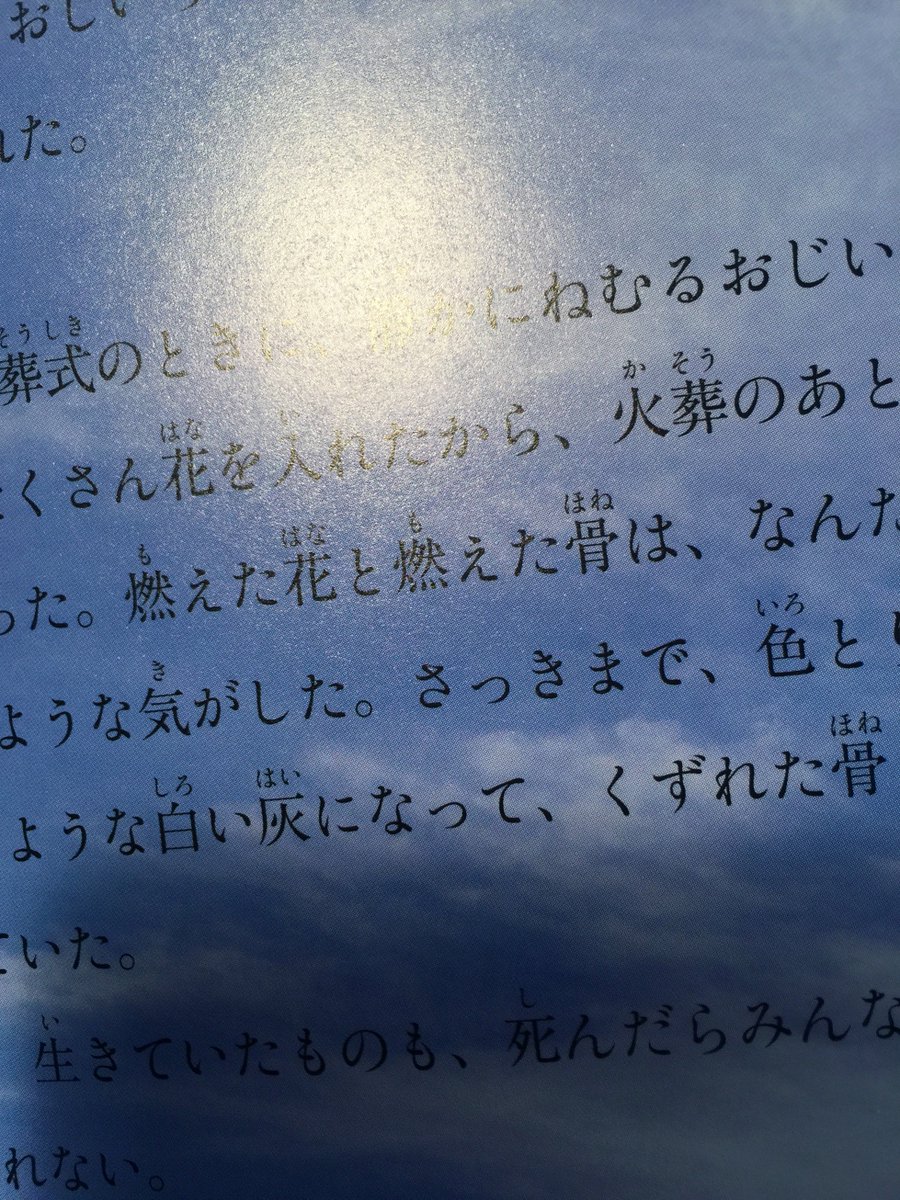 おじい
れた。
葬式のときに、静かにねむるおじい
たくさん花を入れたから、火葬のあと
った。燃えた花と燃えた骨は、なんだ
ような気がした。さっきまで、色と
ような白い灰になって、くずれた骨
ていた。
生きていたものも、死んだらみんな
れない。